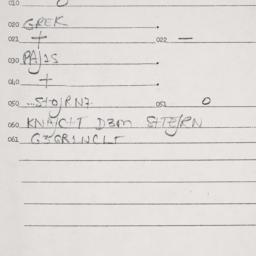 010
020 GREK
021 + 022 —
030 PAJ1S
040 +
050 ...StOJRN7 051 0
060 KNAJCHT D3M StE/RN
061 G3GR1NCLT